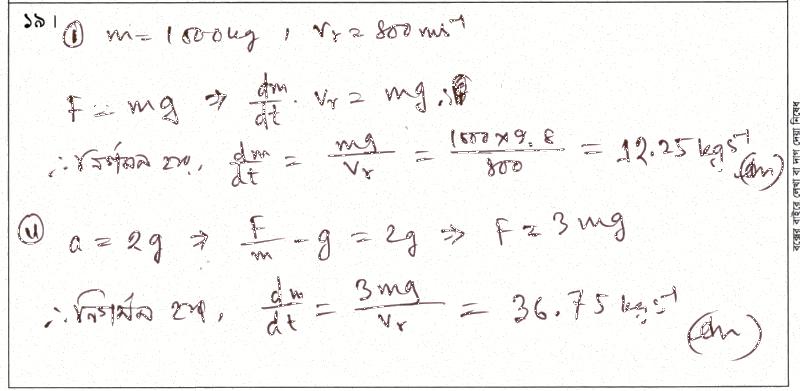 ১৯। (i) m = 1000kg, Vr = 800 ms⁻¹
F = mg ⇒ dm/dt · Vr = mg ∴
∴ নির্গমন হার, dm/dt = mg/Vr = 1000×9.8/800 = 12.25 kgs⁻¹ (Ans)
(ii) a = 2g ⇒ F/m - g = 2g ⇒ F = 3mg
∴ নির্গমন হার, dm/dt = 3mg/Vr = 36.75 kgs⁻¹ (Ans)
বক্সের বাইরে লেখা বা দাগ দেয়া নিষেধ